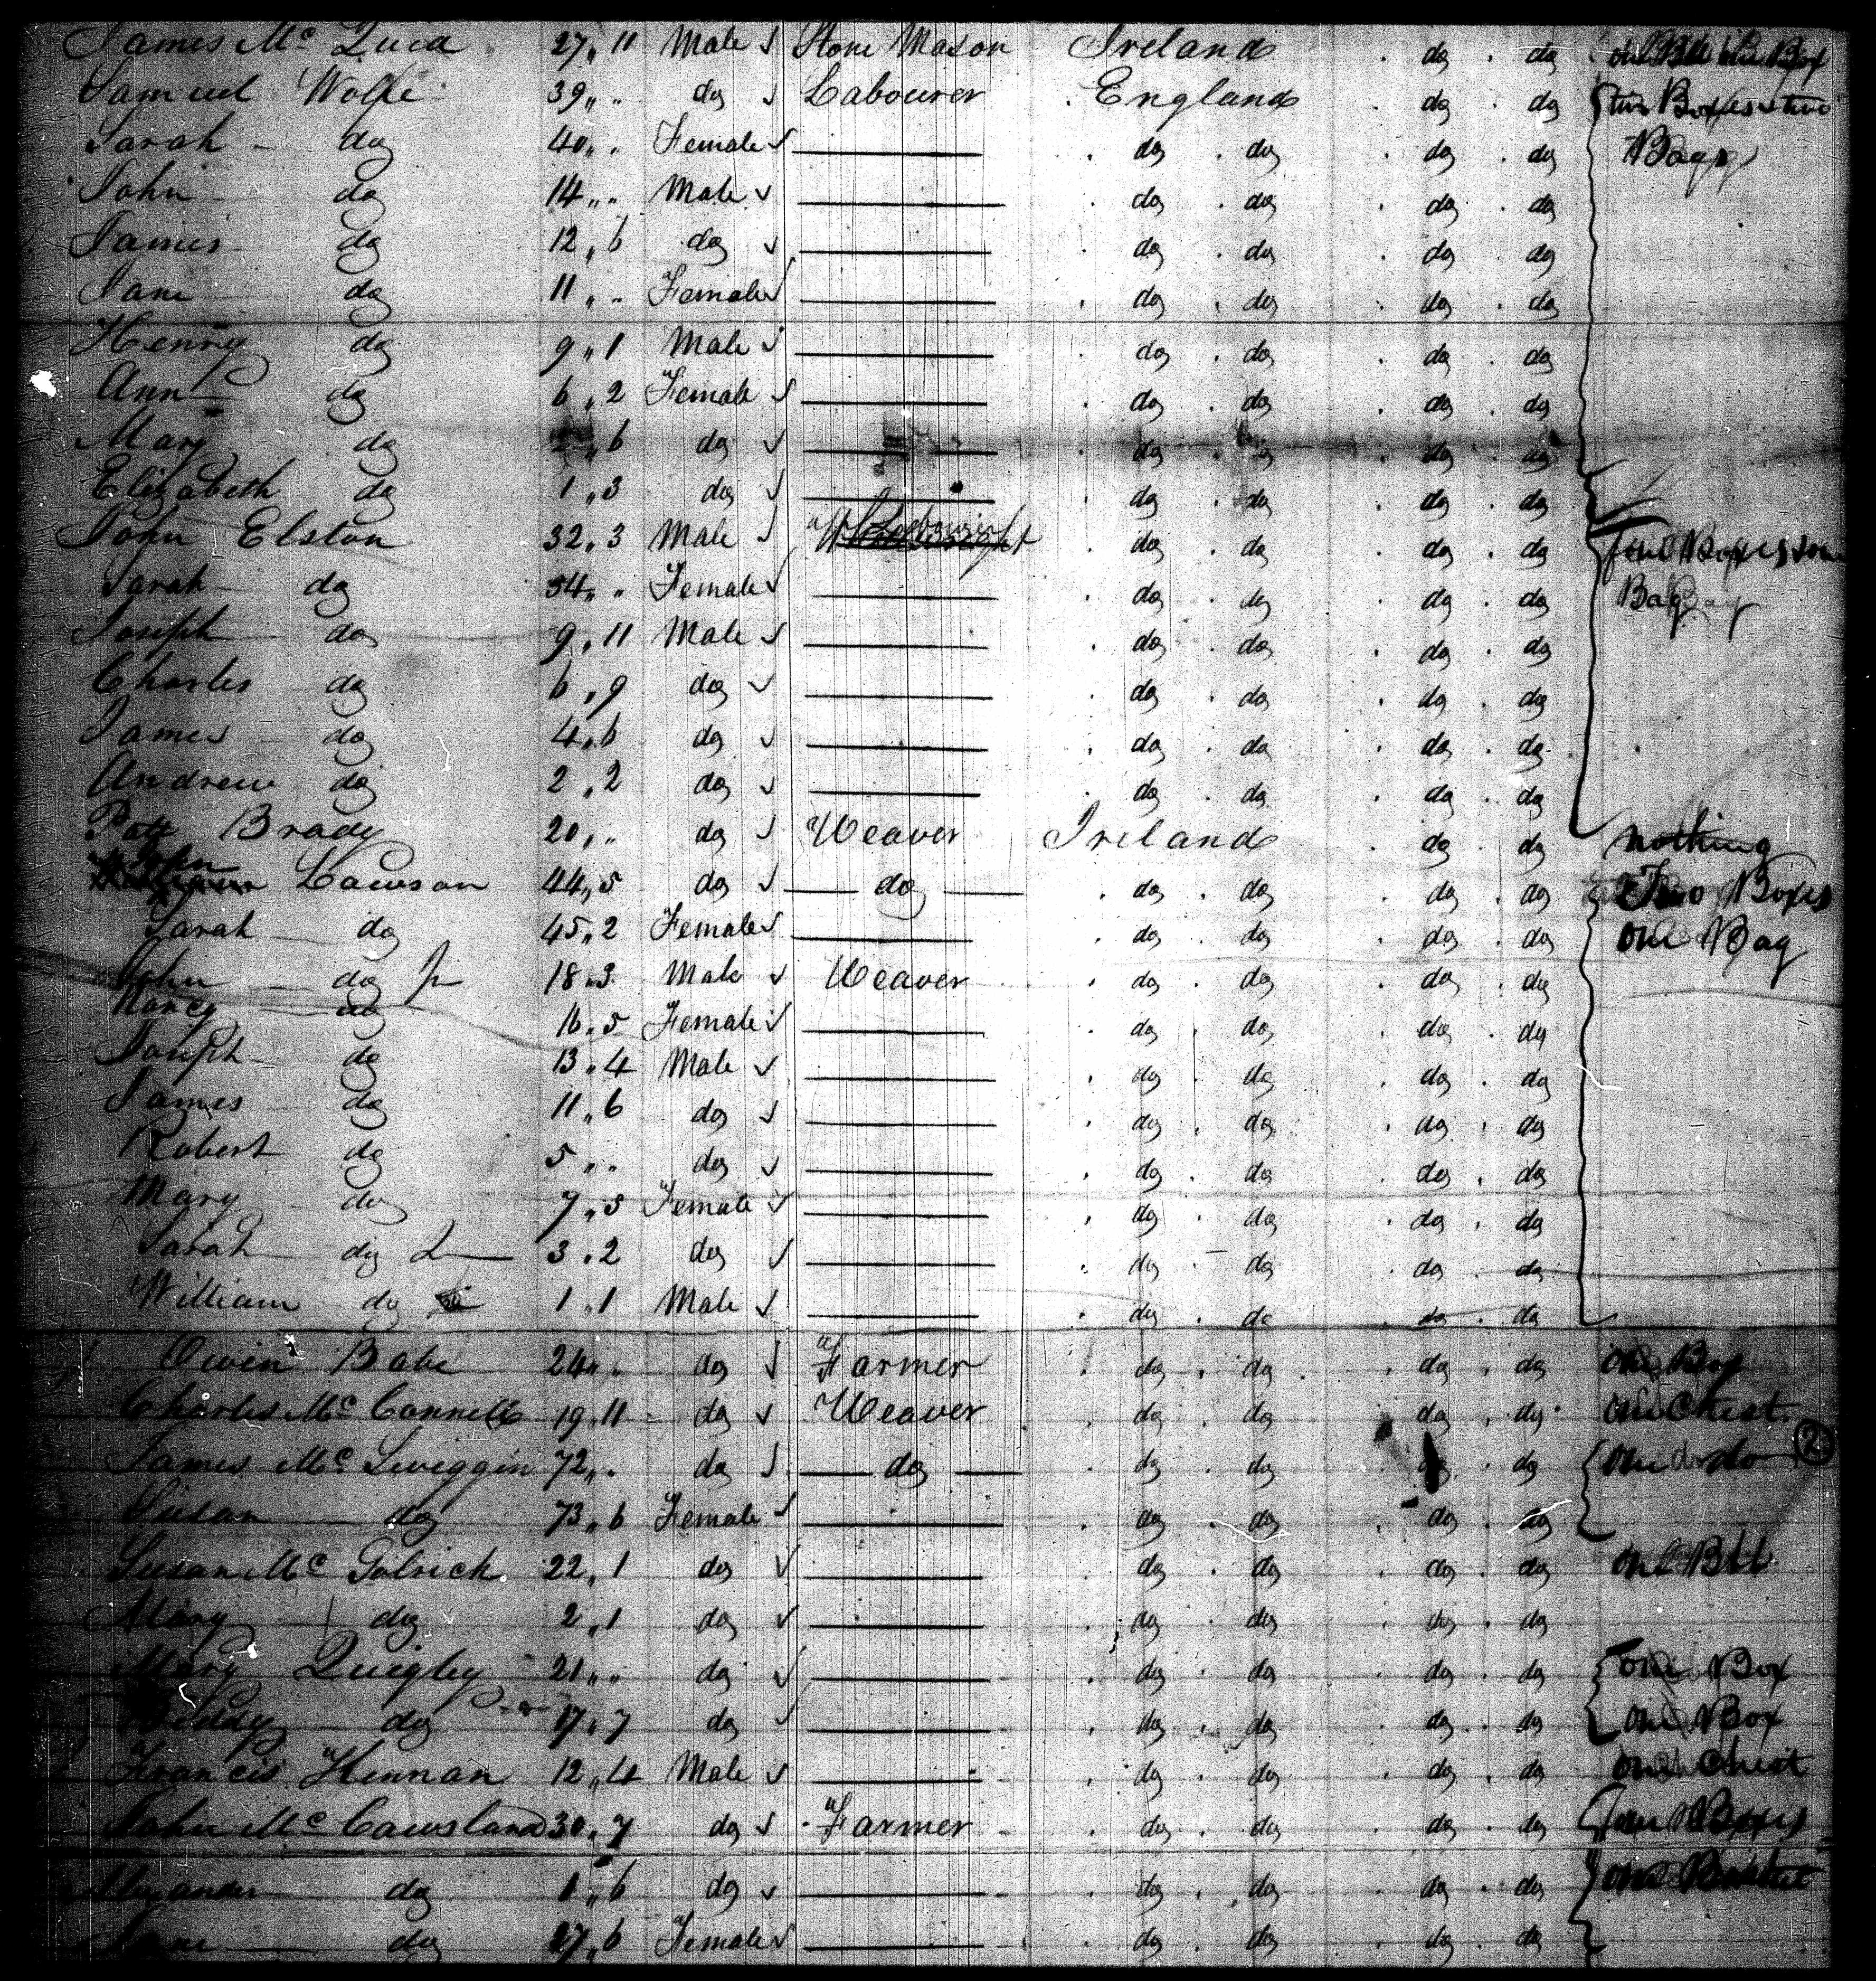 James Mc Quid 27 " 11 Male Stone Mason Ireland do do one Box
Samuel Wolfe 39 " " do Labourer England do do Boxes two
Sarah do 40 " " Female do do do do Bags
John do 14 " " Male do do do do
James do 12 " 6 do do do do do
Jane do 11 " " Female do do do do
Henry do 9 " 1 Male do do do do
Ann do 6 " 2 Female do do do do
Mary do " 6 do do do do do
Elizabeth do 1 " 3 do do do do do
John Elston 32 " 3 Male Labourer do do do do Boxes one
Sarah do 34 " " Female do do do do Bag
Joseph do 9 " 11 Male do do do do
Charles do 6 " 9 do do do do do
James do 4 " 6 do do do do do
Andrew do 2 " 2 do do do do do
Patt Brady 20 " " do Weaver Ireland do do nothing
John Lawson 44 " 5 do do do do do do Two Boxes
Sarah do 45 " 2 Female do do do do one Bag
John do Jr 18 " 3 Male Weaver do do do do
Nancy do 16 " 5 Female do do do do
Joseph do 13 " 4 Male do do do do
James do 11 " 6 do do do do do
Robert do 5 " " do do do do do
Mary do 7 " 5 Female do do do do
Sarah do 2 3 " 2 do do do do do
William do 1 " 1 Male do do do do
Owen Babe 24 " " do Farmer do do do do one Box
Charles Mc Connell 19 " 11 do Weaver do do do do one Chest
James Mc Swiggin 72 " " do do do do do do one do 2
Susan do 73 " 6 Female do do do do
Susan Mc Golrick 22 " 1 do do do do do one Bll
Mary do 2 " 1 do do do do do
Mary Quigley 21 " " do do do do do one Box
Biddy do 17 " 7 do do do do do one Box
Francis Hennan 12 " 4 Male do do do do one Chest
John Mc Causland 30 " 7 do Farmer do do do do Boxes
Alexander do 1 " 6 do do do do do one Basket
Jane do 27 " 6 Female do do do do